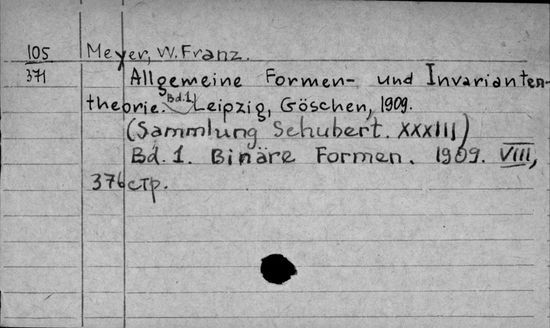 105 Meyer, W. Franz.
371 Allgemeine Formen- und Invarianten-
theorie. Bd.1) Leipzig, Göschen, 1909.
(Sammlung Schubert. XXXIII)
Bd. 1. Binäre Formen. 1909. VIII,
376 стр.